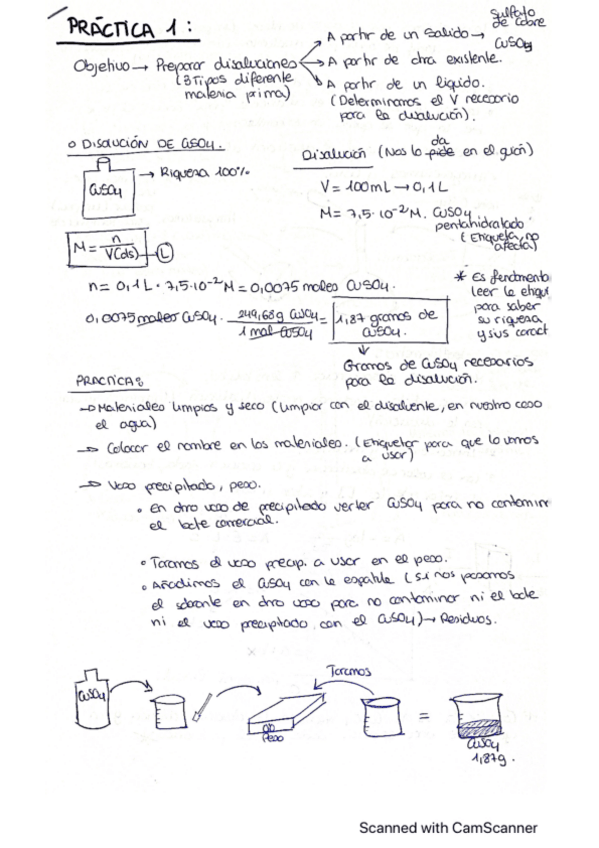 PRÁCTICA 1:
Objetivo → Preparar disoluciones
(3 Tipos diferente
materia prima)
A partir de un Solido → sulfato
de cobre
CuSO4
→ A partir de otra existente.
A partir de un liquido.
(Determinamos el V necesario
para la disolución).
o DISOLUCIÓN DE CuSO4.
CuSO4 → Riqueza 100%
Disolución (Nos lo pide da en el guión)
V = 100mL → 0,1 L
M = 7,5·10-2 M. CuSO4
pentahidratado
(Etiqueta, no
afecta)
M = n / V(ds) → L
n = 0,1 L · 7,5·10-2 M = 0,0075 moles CuSO4.
0,0075 moles CuSO4 · 249,68g CuSO4 / 1 mol CuSO4 = 1,87 gramos de
CuSO4.
* Es fundamental
leer la etiqu
para saber
su riqueza
y sus caract
Gramos de CuSO4 necesarios
para la disolución.
PRACTICA:
→ Materiales limpios y seco (limpiar con el disolvente, en nuestro caso
el agua)
→ Colocar el nombre en los materiales. (Etiquetar para que lo vamos
a usar)
→ Vaso precipitado, peso.
• en otro vaso de precipitado verter CuSO4 para no contamin
el bote comercial.
• Taramos el vaso precip. a usar en el peso.
• Añadimos el CuSO4 con la espatula (si nos pasamos
el sobrante en otro vaso para no contaminar ni el bote
ni el vaso precipitado con el CuSO4) → Residuos.
Taramos
CuSO4
Peso
=
CuSO4
1,87g.
Scanned with CamScanner